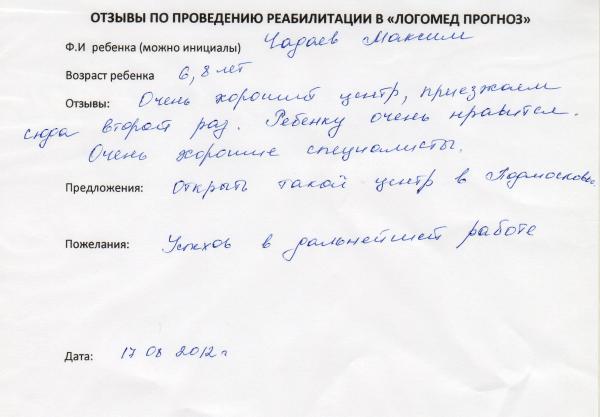 ОТЗЫВЫ ПО ПРОВЕДЕНИЮ РЕАБИЛИТАЦИИ В «ЛОГОМЕД ПРОГНОЗ»
Ф.И ребенка (можно инициалы) Чадаев Максим
Возраст ребенка 6,8 лет
Отзывы: Очень хороший центр, приезжаем
сюда второй раз. Ребенку очень нравится.
Очень хорошие специалисты.
Предложения: Открыть такой центр в Подмосковье.
Пожелания: Успехов в дальнейшей работе
Дата: 17 08 2012 г